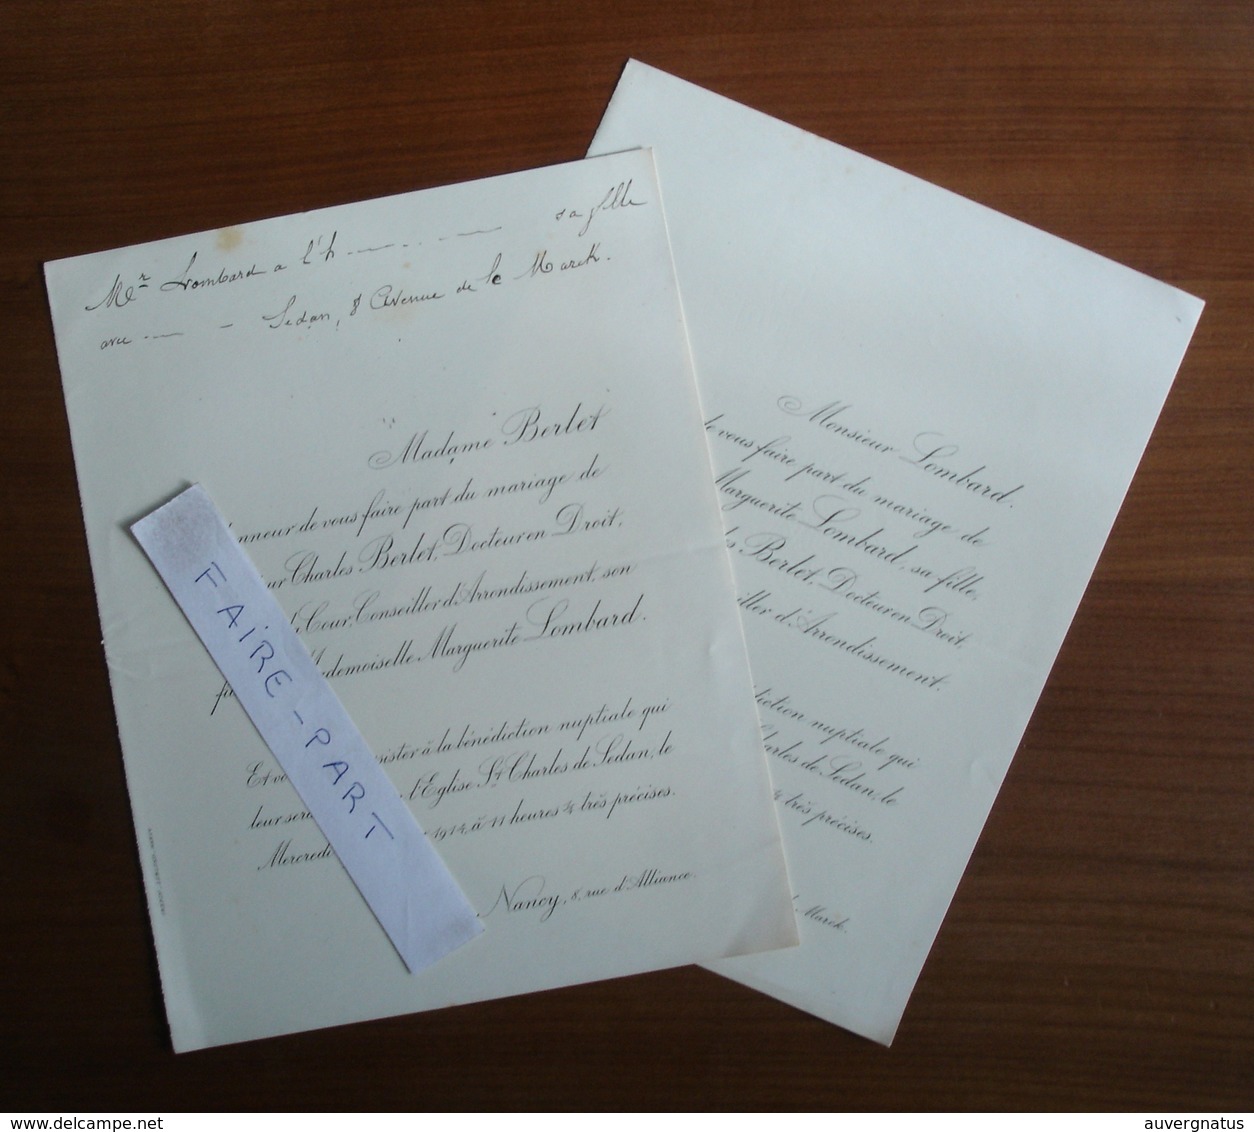 Mr Lombard a l'h sa fille
avec Sedan, 8 Avenue de la Marck.
Madame Berlet
nneur de vous faire part du mariage de
ur Charles Berlet, Docteur en Droit,
Cour, Conseiller d'Arrondissement, son
demoiselle Marguerite Lombard.
Et vo sister à la bénédiction nuptiale qui
leur sera l'Eglise St Charles de Sedan, le
Mercredi 1914, à 11 heures ¼ très précises.
Nancy, 8, rue d'Alliance.
FAIRE-PART
Monsieur Lombard.
de vous faire part du mariage de
Marguerite Lombard, sa fille,
es Berlet, Docteur en Droit,
iller d'Arrondissement.
diction nuptiale qui
harles de Sedan, le
¼ très précises.
Marck.
delcampe.net
auvergnatus